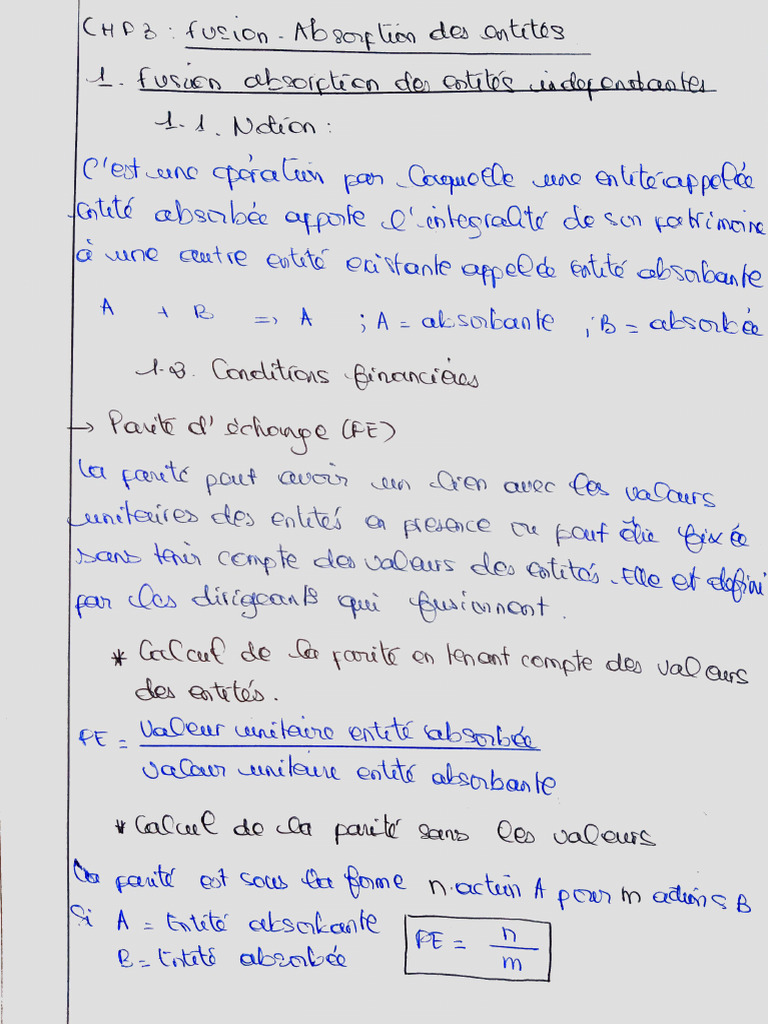 CHP 3 : fusion - Absorption des entités
1. fusion absorption des entités independantes
1.1. Notion :
C'est une opération par Laquelle une entité appelée
Entité absorbée apporte l'integralité de son patrimoine
à une autre entité existante appelée Entité absorbante
A + B => A ; A = absorbante ; B = absorbée
Conditions financières
→ Parité d'échange (PE)
La parité peut avoir un lien avec les valeurs
unitaires des entités en presence ou peut être fixée
sans tenir compte des valeurs des entités. Elle et defini
par les dirigeants qui fusionnent.
* Calcul de la parité en tenant compte des valeurs
des entités.
PE = Valeur unitaire entité absorbée
valeur unitaire entité absorbante
* Calcul de la parité sans les valeurs
La parité est sous la forme n action A pour m actions B
Si A = Entité absorbante
B = Entité absorbée
PE = n
m